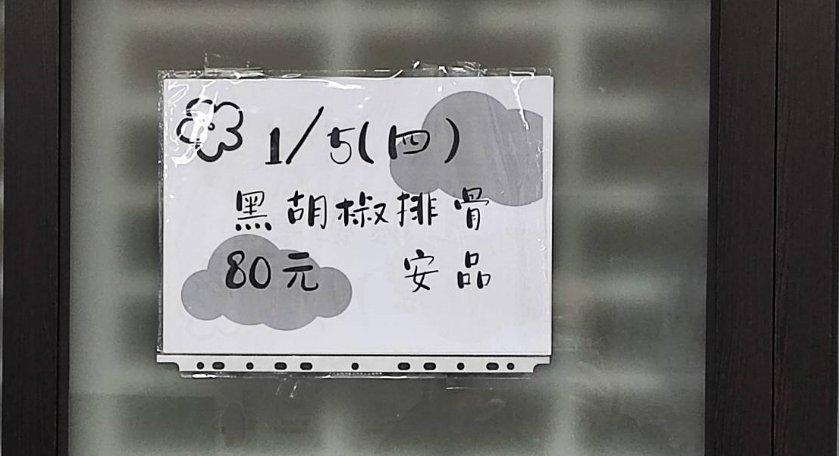 1/5(四)
黑胡椒排骨
80元 安品